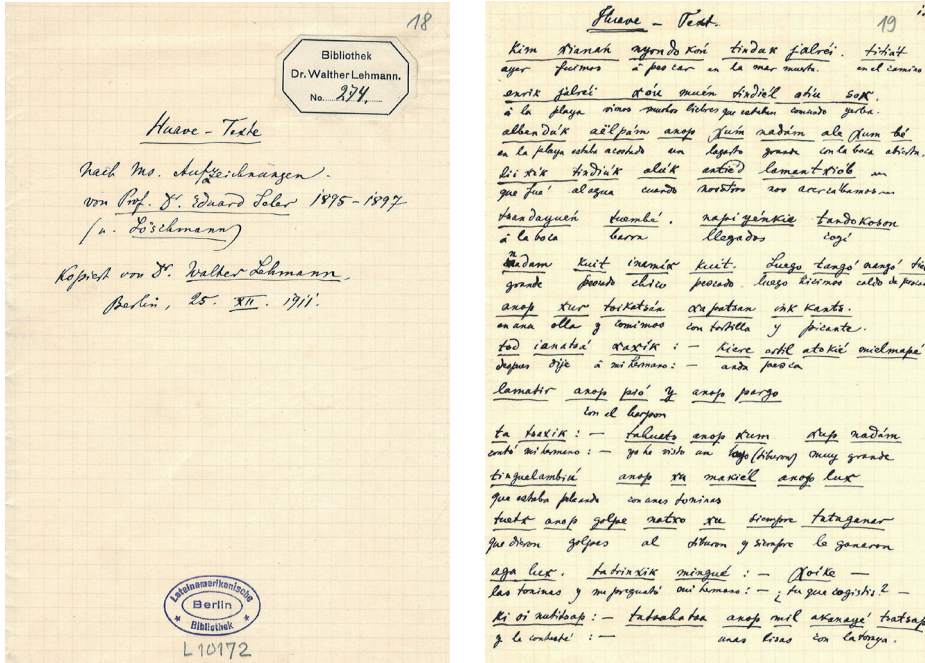 18
Bibliothek
Dr. Walther Lehmann.
No. 274.
Huave – Texte
Nach Ms. Aufzeichnungen
von Prof. Dr. Eduard Seler 1895–1897
(u. Löschmann)
Kopiert von Dr. Walter Lehmann.
Berlin, 25. XII. 1911.
Lateinamerikanische
Berlin
Bibliothek
L 10172
Huave – Text.
19
kim xianah nyondo koń tinduk jalréi. titiát
ayer fuimos á pescar en la mar muerta. en el camino
enrik jalréi xóu muém tindiél atiu sok.
á la playa vimos muchos liebres que estaban comiendo yerba.
albendúk aëlpám anop xum nadám ale xum bé
en la playa estaba acostado un lagarto grande con la boca abierta.
tindiúk alúk lamantxiób
que fué al agua cuando nosotros nos acercábamos
tsandayueń tuembé. napiyénkie tandokoson
á la boca barra llegados cogí
nadam kuit inamix kuit. Luego tangó nangó
grande pescado chico pescado. Luego hicimos caldo de pescado
anop xur toikotsán xapatsan ink kants.
en una olla y comimos con tortilla y picante.
tod ianatsá xaxík : – kiere ortil atokié mielmapé
despues dije á mi hermano : – anda pesca
lamatir anop pió y anop pargo
con el harpon
ta tsaxik : – tahuato anop xum xup nadám
contó mi hermano : – yo he visto un (tiburon) muy grande
tinguelambiú anop xu makiél anop lux
que estaba peleando con unas toninas
tuetx anop golpe natxo xu siempre tatuganar
que dieron golpes al tiburon y siempre le ganaron
aga lux. tadrinxik mingué : – xoike –
las toninas y me preguntó mi hermano : – ¿tu que cogistes? –
ki oi nutitsap : – tatsahatsa anop mil akanayé tsatsap
y le contesté : – unas lisas con la taraya.